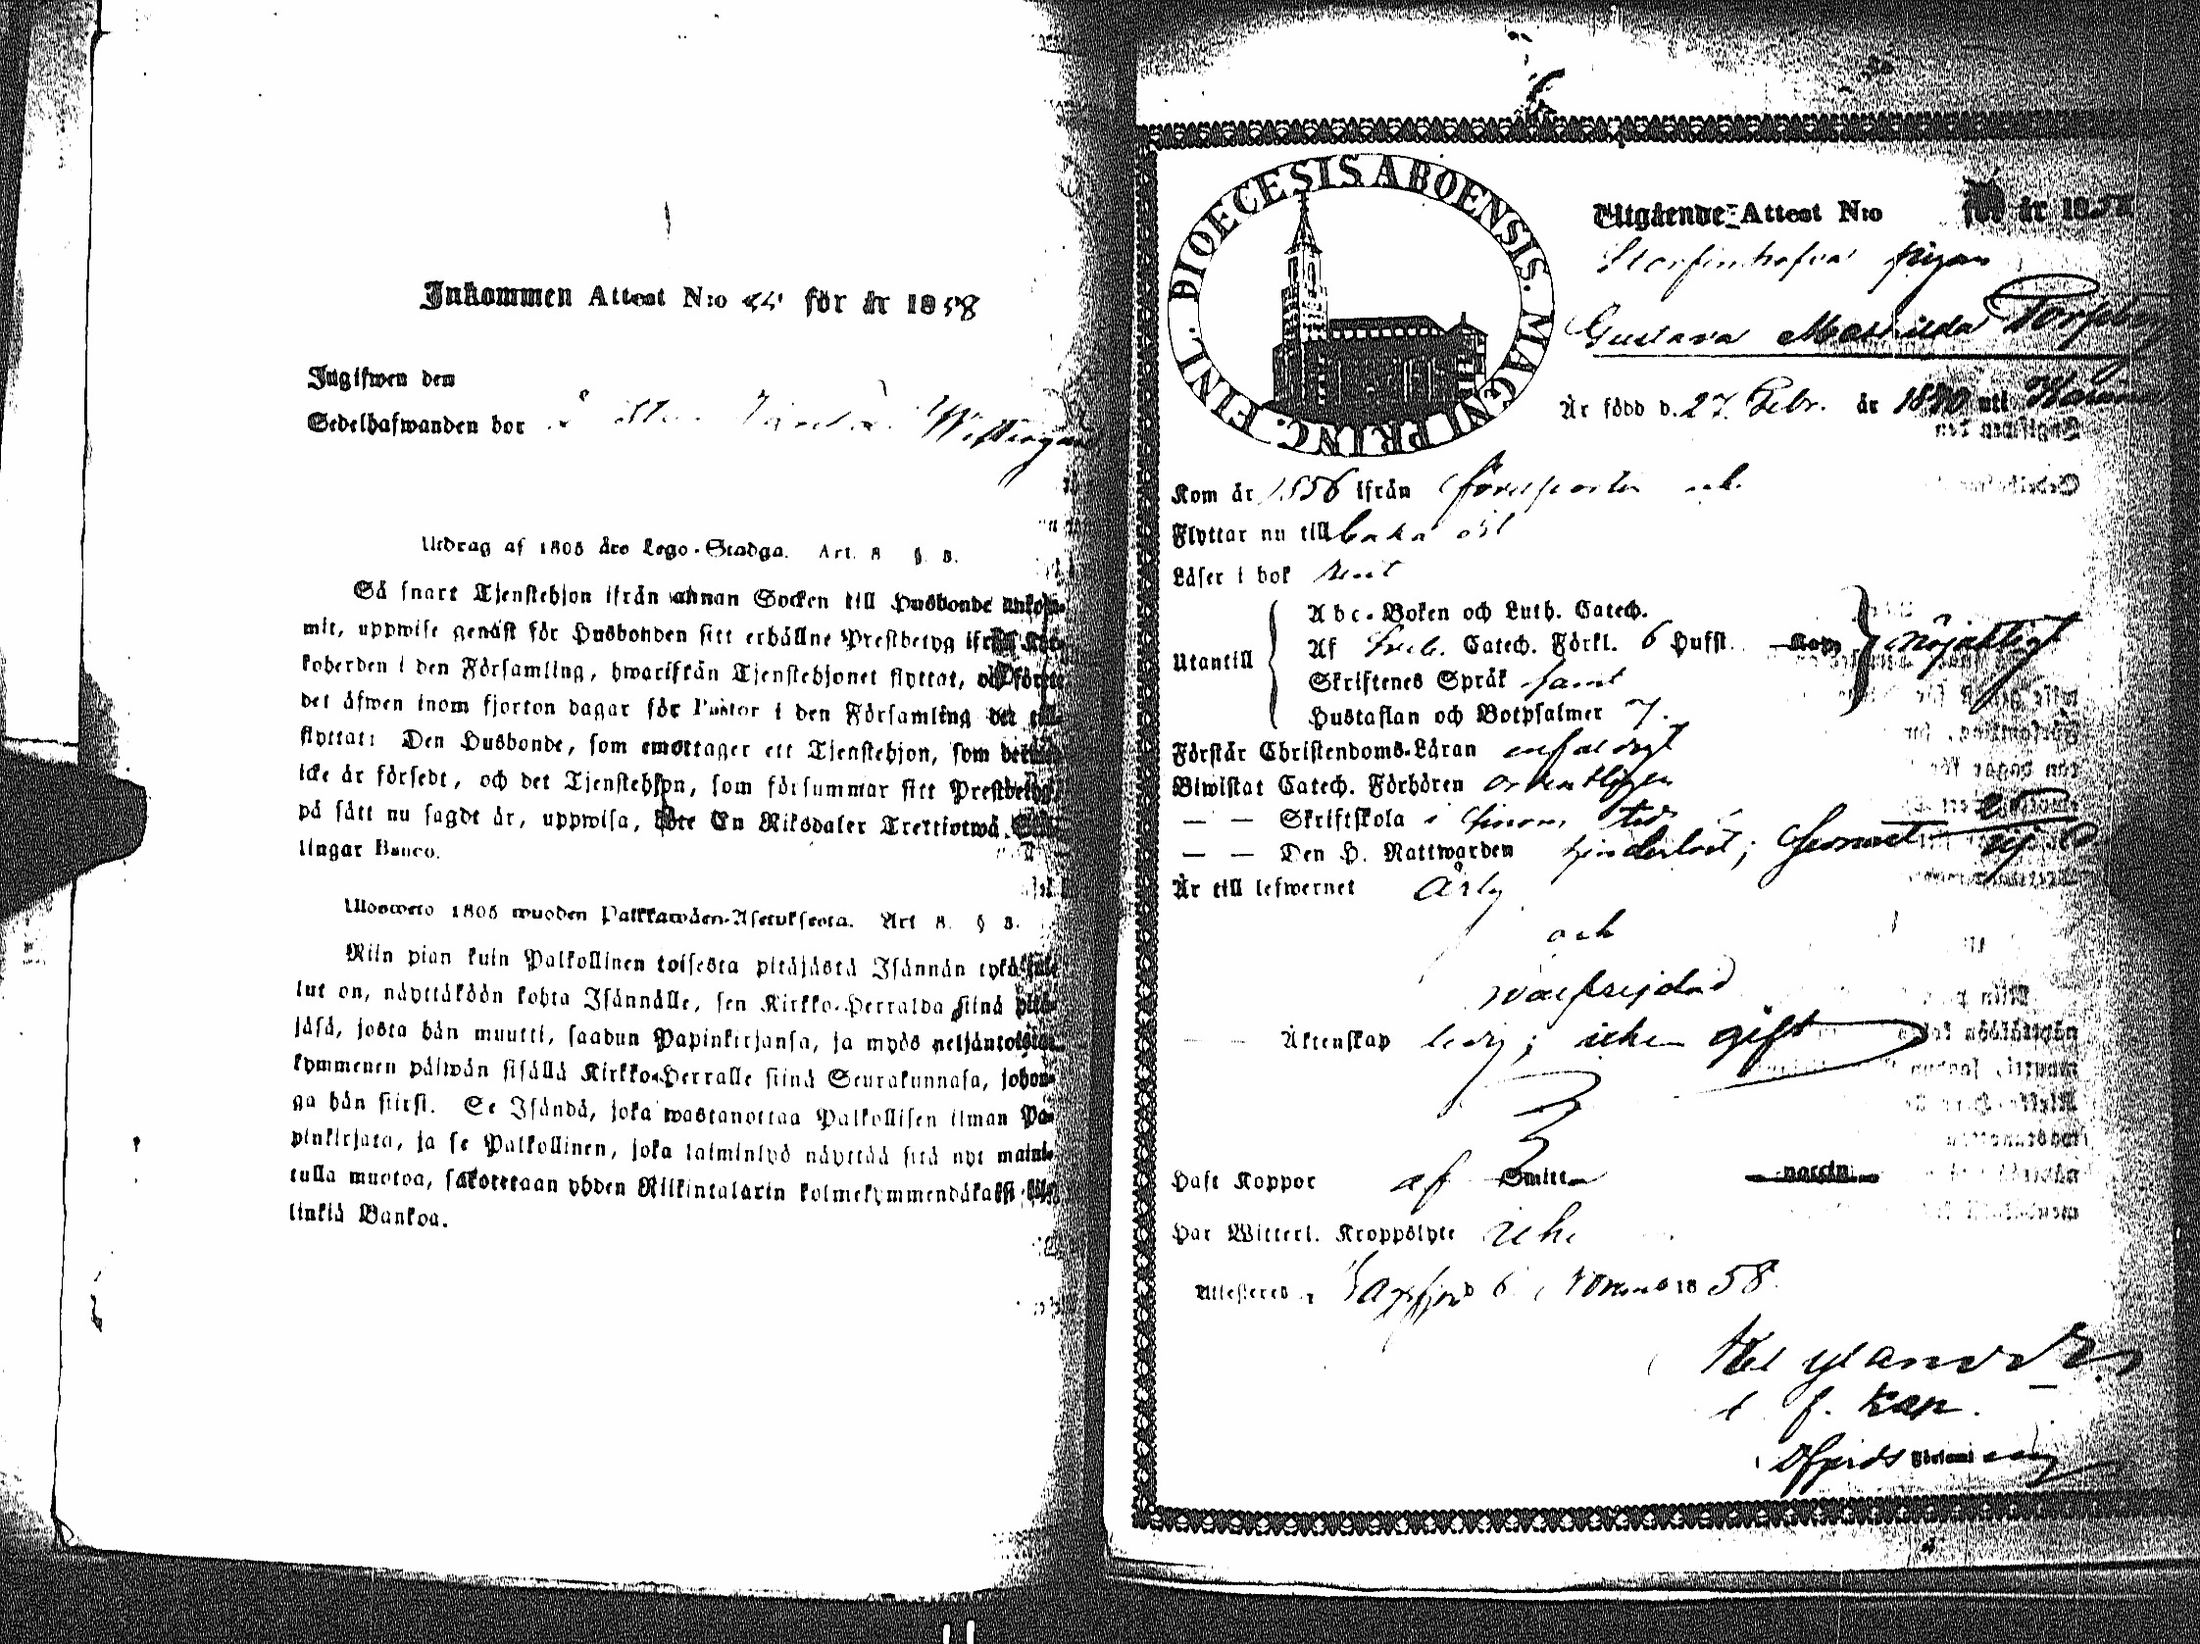 Inkommen Attest N:o för år 1858
Ingifwen den
Sedelhafwanden bor
Utdrag af 1805 års Lego-Stadga. Art. 8 §. 3.
Så snart Tjenstehjon ifrån annan Socken till Husbonde ankom-
mit, uppwise genast för Husbonden sitt erhållne Prestbetyg ifrån Kyr-
koherden i den Församling, hwarifrån Tjenstehjonet flyttat, och förete
det äfwen inom fjorton dagar för Pastor i den Församling det till-
flyttat: Den Husbonde, som emottager ett Tjenstehjon, som dermed
icke är försedt, och det Tjenstehjon, som försummar sitt Prestbetyg,
på sätt nu sagdt är, uppwisa, böte En Riksdaler Trettiotwå Skil-
lingar Banco.
Uloswето 1805 wuoden Palkkawäen-Asetuksesta. Art 8. § 3.
Niin pian kuin Palkollinen toisesta pitäjästä Isännän tykö tul-
lut on, näyttäköön kohta Isännälle, sen Kirkko-Herralda siinä pitä-
jäsä, josta hän muutti, saadun Papinkirjansa, ja myös neljäntoista-
kymmenen päiwän sisällä Kirkko-Herralle siinä Seurakunnasa, johon-
ga hän siirsi. Se Isändä, joka wastanottaa Palkollisen ilman Pa-
pinkirjata, ja se Palkollinen, joka laiminlyö näyttää sitä nyt maini-
tulla muotoa, sakotetaan yhden Riikintalarin kolmekymmendäkaksi kil-
linkiä Bankoa.
DIOECESIS ABOENSIS. MAGNI PRINC. FINL.
Utgående-Attest N:o för år 1858
Storfinhofva pigan
Gustava Mathilda
Är född d. 27 Febr. år 1840 uti
Kom år 1856 ifrån
Flyttar nu till baka dit
Läser i bok rent
Utantill
Abc-Boken och Luth. Catech.
Af Sveb. Catech. Förkl. 6 Hufst. nöjaktigt
Skriftenes Språk samt
Hustaflan och Botpsalmer 7.
Förstår Christendoms-Läran enfaldigt
Biwistat Catech. Förhören ordentligen
— — Skriftskola i sinom tid
— — Den H. Nattwarden hinderlöst;
Är till lefwernet ärlig
och
wälfrejdad
— — Äktenskap ledig; icke gift
Haft Koppor af Smitta
Har Witterl. Kroppslyte icke
Attesteras 6 Novemb 1858.